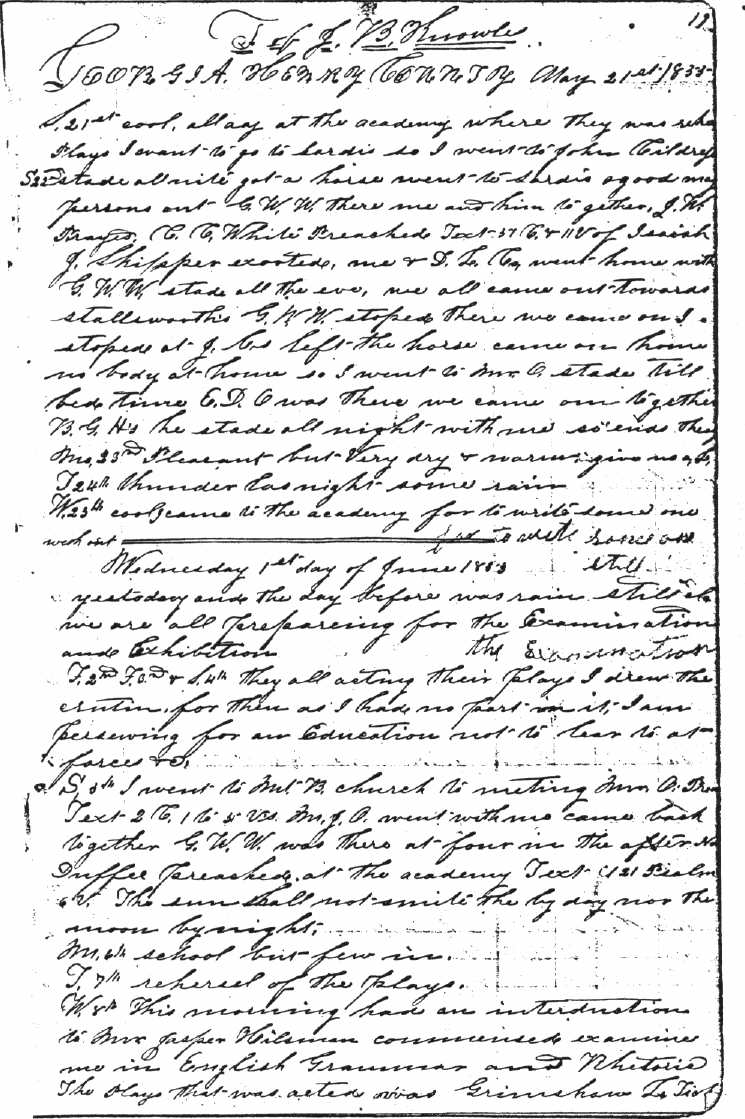 19
T of J. B. Knowles
GEORGIA. HENRY COUNTY May 21st 1853
S. 21st cool, all day at the academy where they was reha
Plays I want to go to Sardis so I went to John Cildres
S 22nd stade all nite got a horse went to Sardis a good may
persons out G. W. W. there me and him to gether, J. W.
Prayed, C. C. White Preached Text 37 C. & 11 V of Isaiah
J. Skipper exorted, me & D. L. Co, went home with
G. W. W. stade all the eve, we all came out towards
Stallsworths G. W. W. stoped there we came on I
stoped at J. Cs left the horse came on home
no body at home so I went to Mr. O. stade till
bed time E. D. C was there we came on together
B. G. Hs he stade all night with me so ends they
Mo, 23rd Pleasant but Very dry & warm give us
T 24th thunder las night some rain
W. 25th cool came to the academy for to write some one
for to write some one
Wednesday 1st day of June 1853 still
yestoday and the day before was rain still
we are all prepareing for the Examination
and Exhibition the Examination
T. 2nd F. 3rd & S. 4th they all acting their plays I drew the
crutin, for then as I had no part in it, I am
persewing for an Education not to lear to at
farces &c,
S, 5th I went to Mt B. church to meting Mr. O. Prea
Text 2 C. 1 to 5 Vs. M. J. O. went with me came back
together G. W. W. was there at four in the after No
Duffee preached at the academy Text (121 Psalm
6 V. The sun shall not smite the by day nor the
moon by night;
M, 6th school but few in.
T. 7th rehersel of the plays.
W 8th This morning had an interduction
to Mr Jasper Hilsman commensed examine
me in English Grammar and Rhetoric
The Plays that was acted was Grimshaw